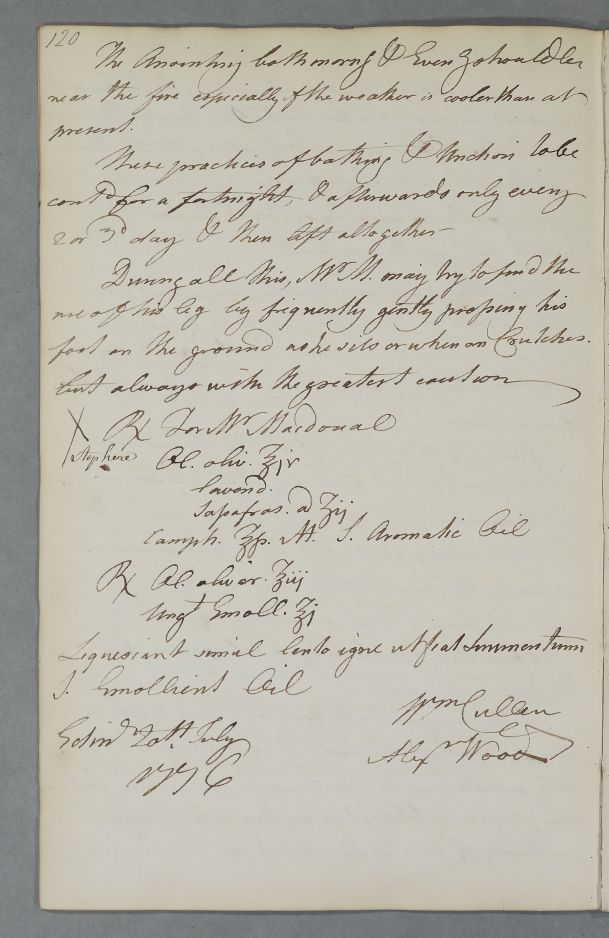 120
The Anointing both morng & Eveng should be
near the fire especially if the weather is cooler than at
present.
These practices of bathing & Unction to be
contd for a fortnight, & afterwards only every
2 or 3d day & then left altogether
During all this, Mr M. may try to find the
use of his leg by frequently gently pressing his
foot on the ground as he sits or when on Crutches.
but always with the greatest caution
℞ For Mr Macdonal
Stop here
Ol. oliv. ℥iv
Lavend.
Sassafras. a ʒij
Camph. ʒß. M. S. Aromatic Oil
℞ Ol. olivar. ℥iij
Ungt Emoll. ℥j
Liquescant simul lento igne ut fiat Linimentum
S. Emollient Oil
Wm Cullen
Edinr 20th July
Alexr Wood
1776